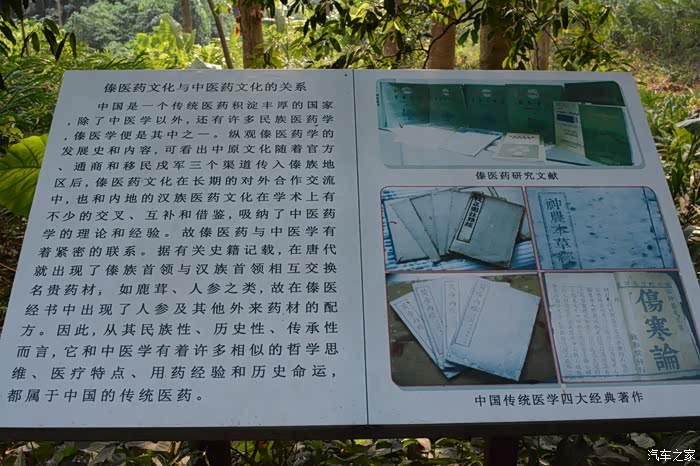 傣医药文化与中医药文化的关系
中国是一个传统医药积淀丰厚的国家
,除了中医学以外,还有许多民族医药学
,傣医学便是其中之一。纵观傣医药学的
发展史和内容,可看出中原文化随着官方
、通商和移民戍军三个渠道传入傣族地
区后,傣医药文化在长期的对外合作交流
中,也和内地的汉族医药文化在学术上有
不少的交叉、互补和借鉴,吸纳了中医药
学的理论和经验。故傣医药与中医学有
着紧密的联系。据有关史籍记载,在唐代
就出现了傣族首领与汉族首领相互交换
名贵药材;如鹿茸、人参之类,故在傣医
经书中出现了人参及其他外来药材的配
方。因此,从其民族性、历史性、传承性
而言,它和中医学有着许多相似的哲学思
维、医疗特点、用药经验和历史命运,
都属于中国的传统医药。
傣医药研究文献
神農本草經
傷寒論
中国传统医学四大经典著作
汽车之家